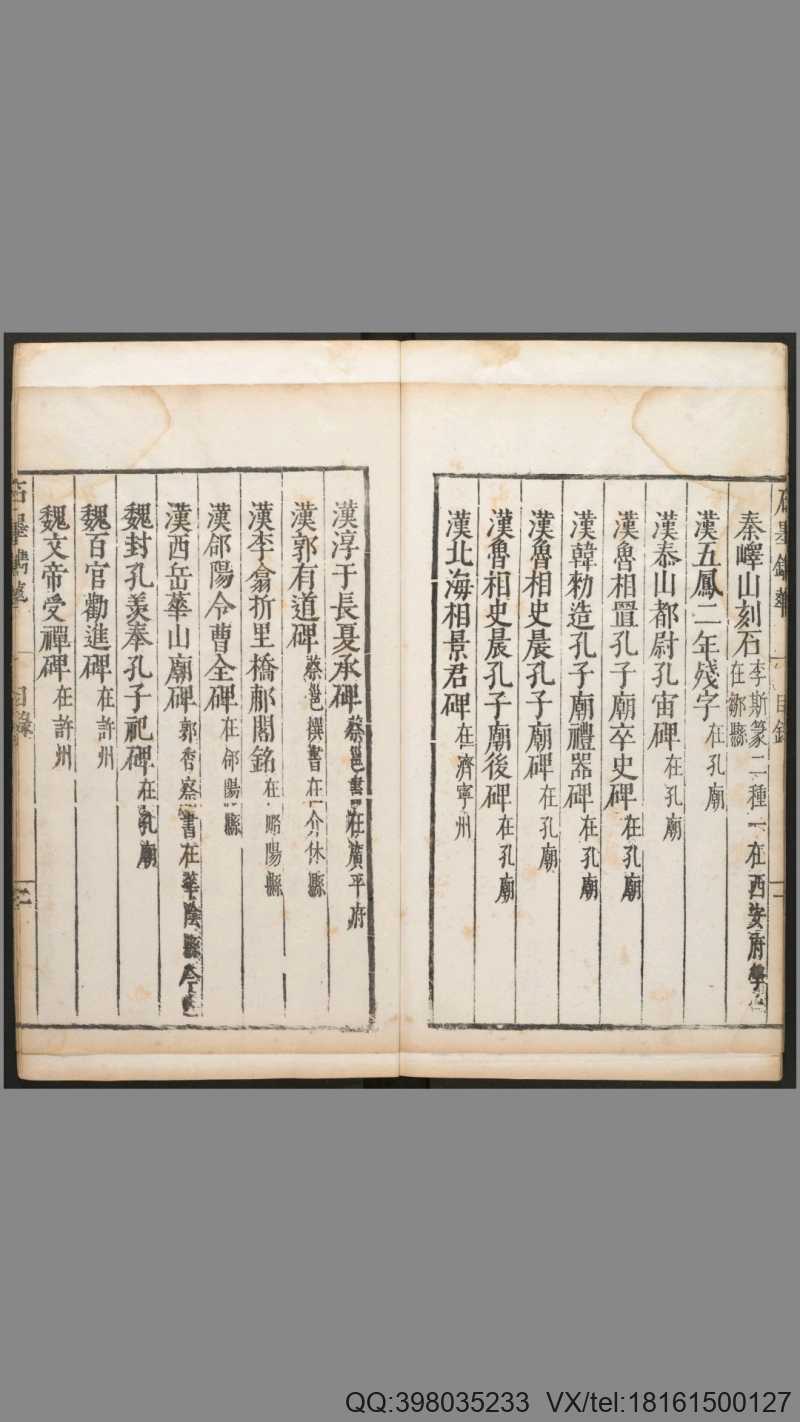 秦嶧山刻石 李斯篆二種一在西安府學一
在鄒縣
漢五鳳二年殘字 在孔廟
漢泰山都尉孔宙碑 在孔廟
漢魯相置孔子廟卒史碑 在孔廟
漢韓勑造孔子廟禮器碑 在孔廟
漢魯相史晨孔子廟碑 在孔廟
漢魯相史晨孔子廟後碑 在孔廟
漢北海相景君碑 在濟寧州
漢淳于長夏承碑 蔡邕書在廣平府
漢郭有道碑 蔡邕撰書在介休縣
漢李翕折里橋郙閣銘 在略陽縣
漢郃陽令曹全碑 在郃陽縣
漢西岳華山廟碑 郭香察書在華陰縣今
魏封孔羨奉孔子祀碑 在孔廟
魏百官勸進碑 在許州
魏文帝受禪碑 在許州
石墨鐫華 目錄 二
QQ:398035233 VX/tel:18161500127